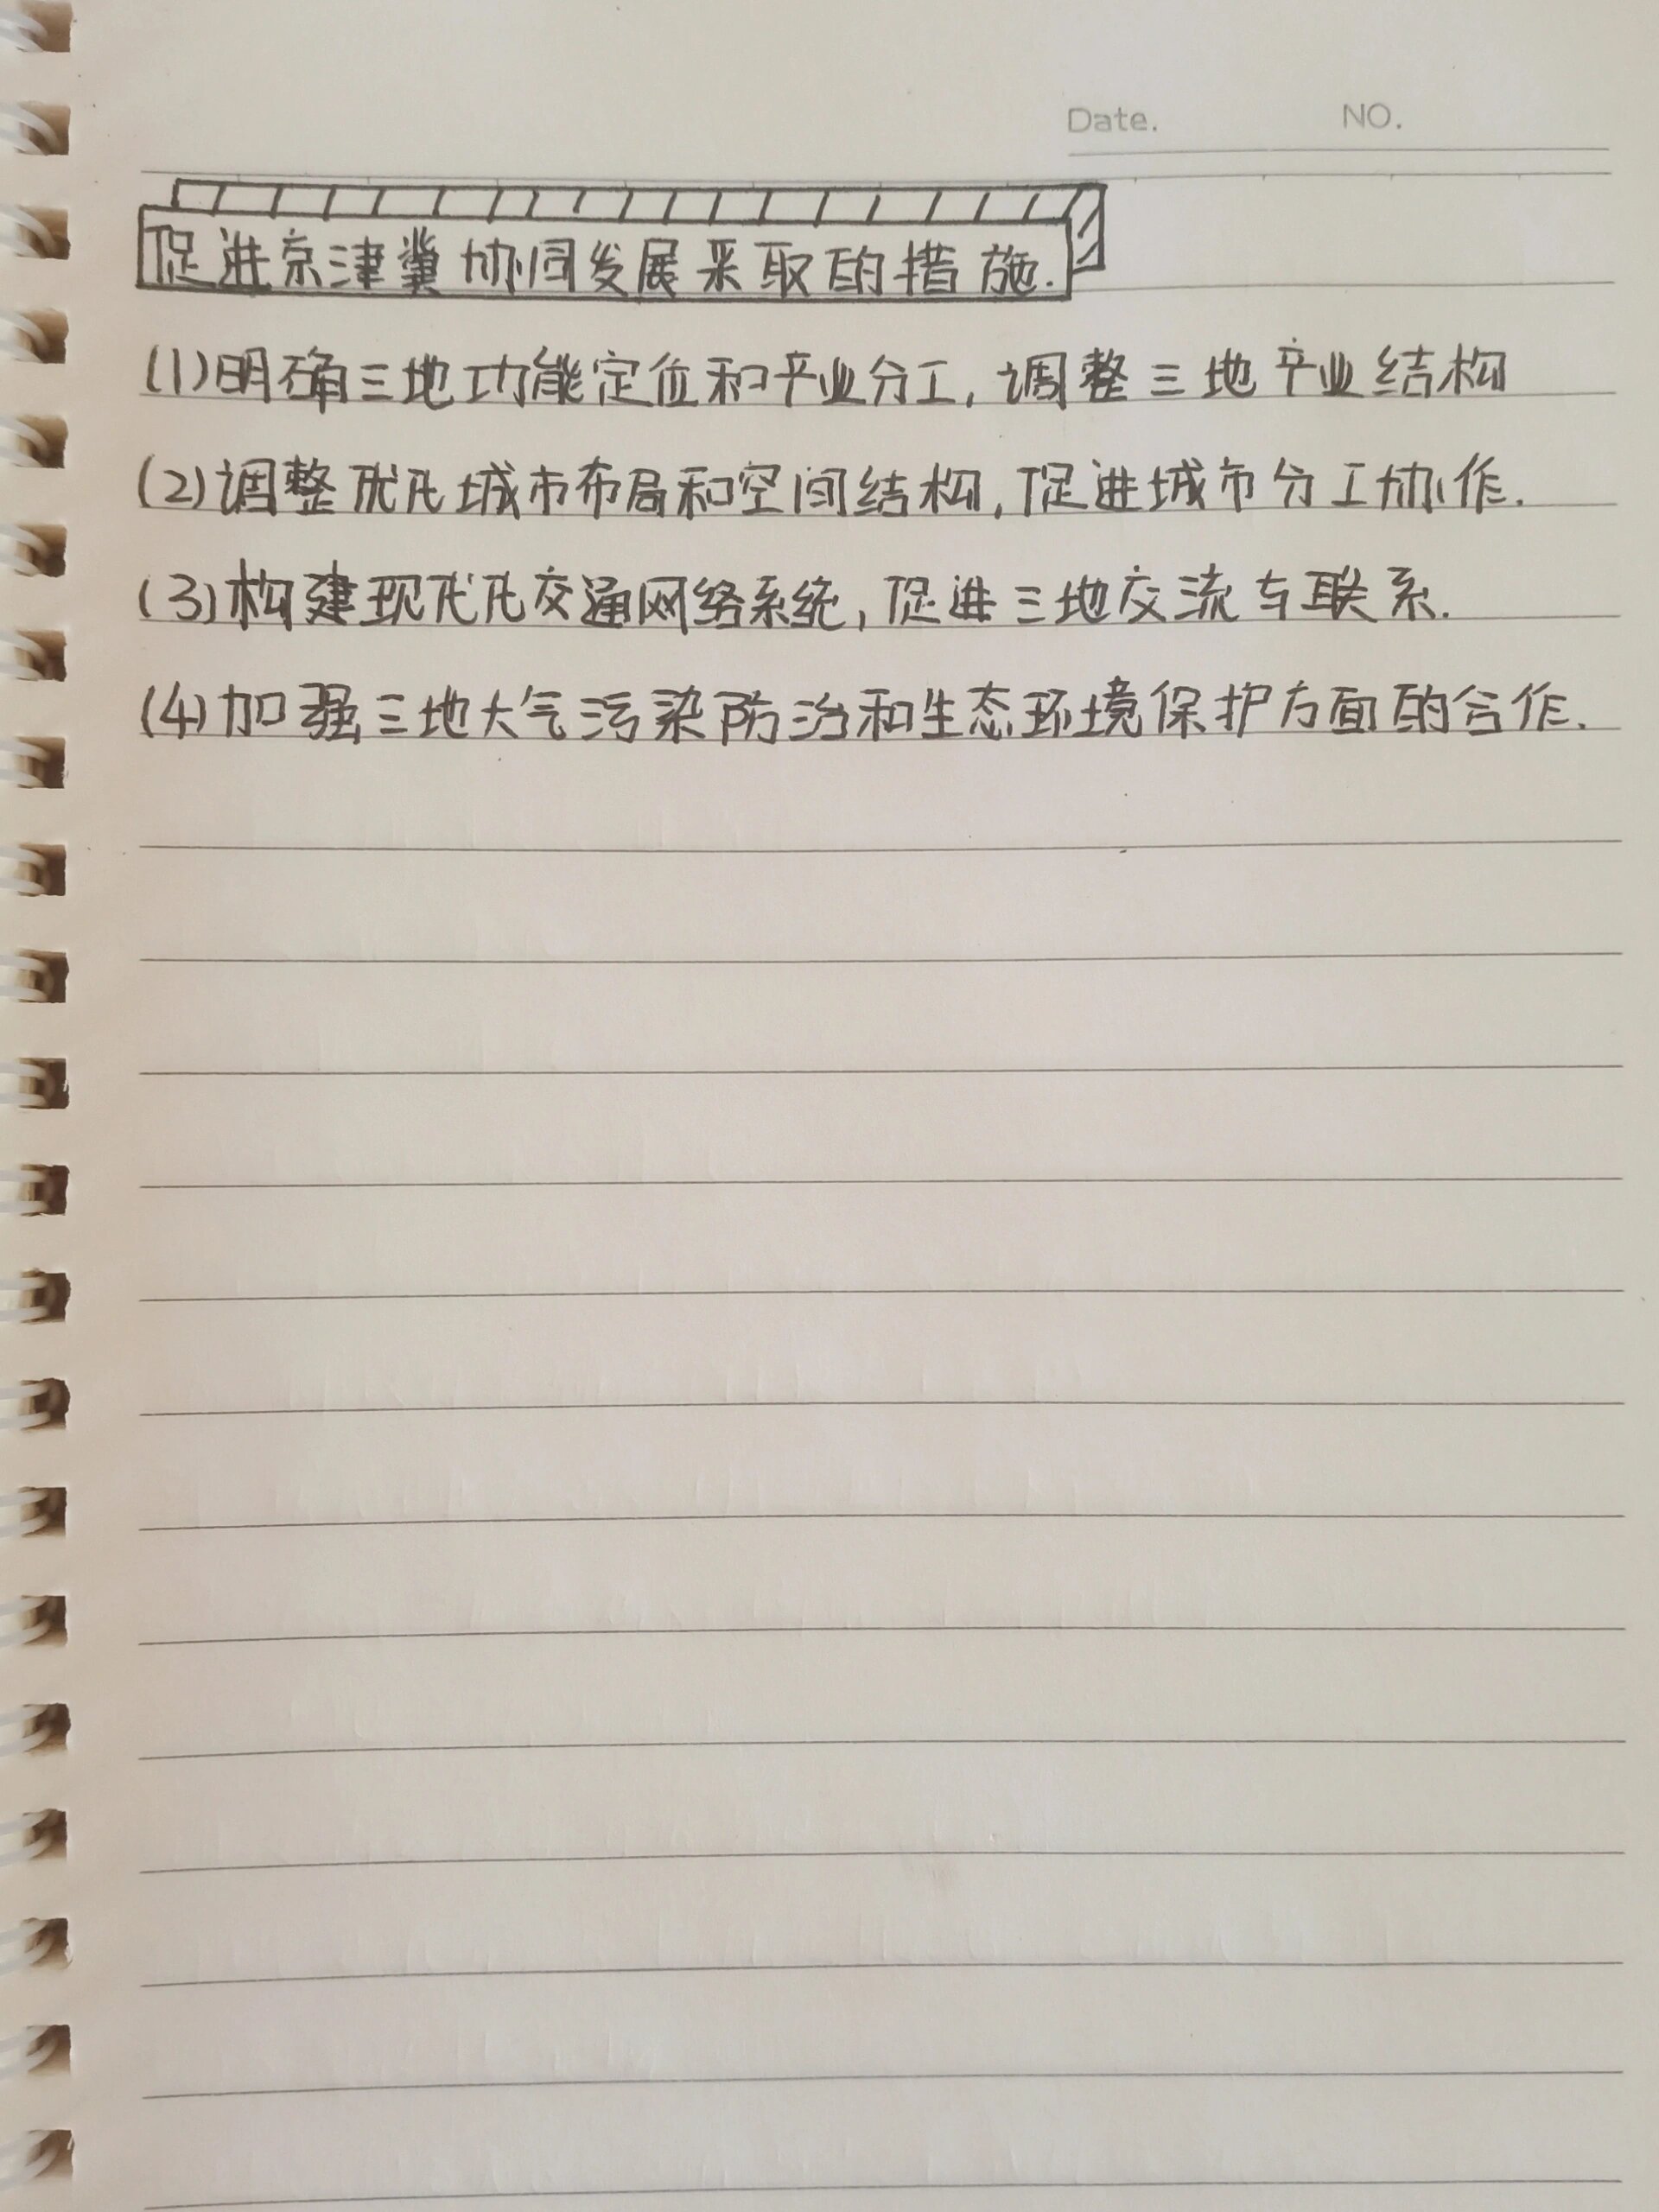 Date. NO.
促进京津冀协同发展采取的措施.
(1)明确三地功能定位和产业分工,调整三地产业结构
(2)调整优化城市布局和空间结构,促进城市分工协作.
(3)构建现代化交通网络系统,促进三地交流与联系.
(4)加强三地大气污染防治和生态环境保护方面的合作.